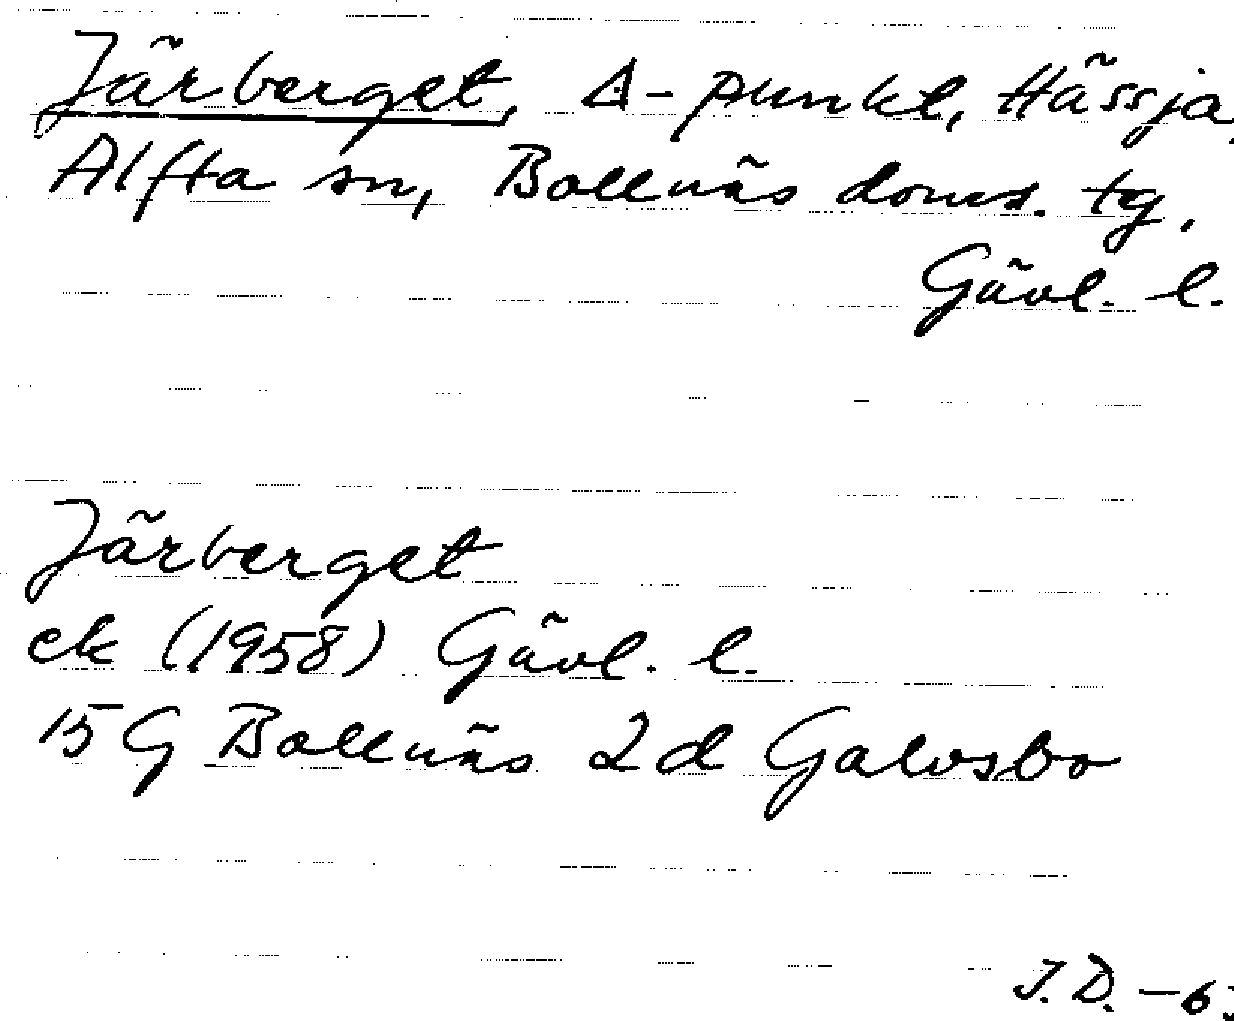 Järberget, Δ-punkt, Hässja,
Alfta sn, Bollnäs doms. tg.
Gävl. l.
Järberget
ek (1958) Gävl. l.
15G Bollnäs 2d Galvsbo
J.D. -6